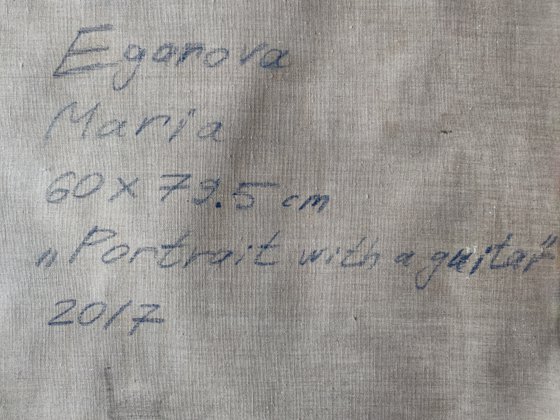 Egorova
Maria
60 x 79.5 cm
„Portrait with a guitar"
2017